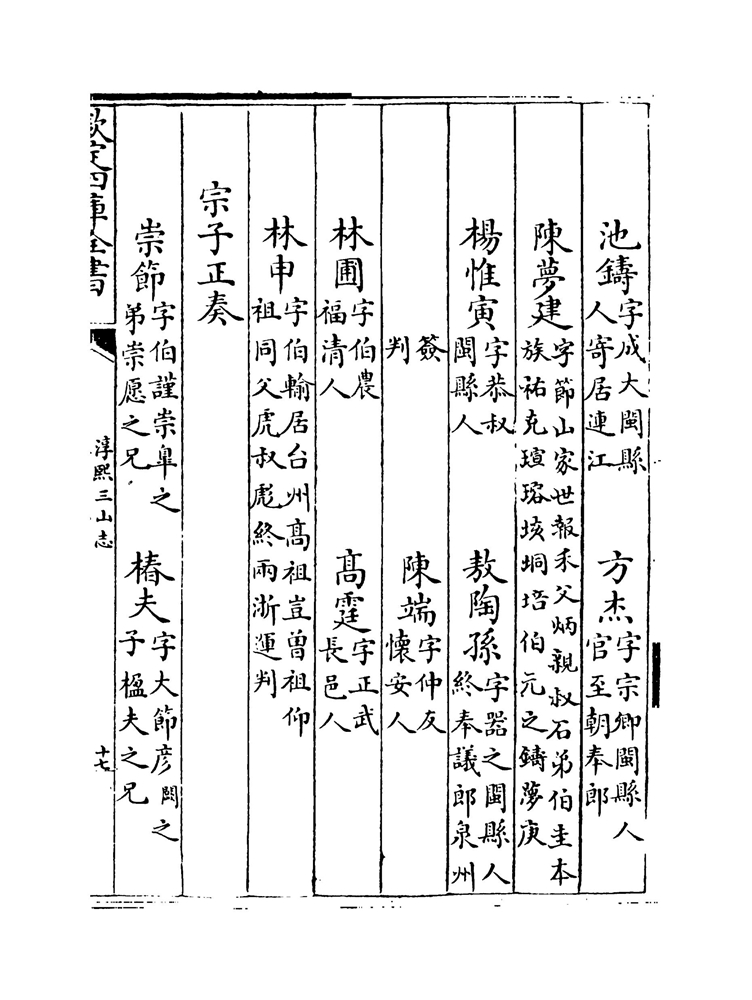 池鑄字成大閩縣人寄居連江　方杰字宗卿閩縣人官至朝奉郎
陳夢建字節山家世報禾父炳親叔石弟伯圭本族祐充瑄瑢垓垌培伯元之鑄夢庚
楊惟寅字恭叔閩縣人　敖陶孫字器之閩縣人終奉議郎泉州
簽判　陳端字仲友懷安人
林圃字伯農福清人　髙霆字正武長邑人
林申字伯輸居台州髙祖豈曽祖仰祖同父虎叔彪終兩浙運判
宗子正奏
崇節字伯謹崇臯之弟崇愿之兄　椿夫字大節彦闕之子楹夫之兄
欽定四庫全書
淳熙三山志
十七